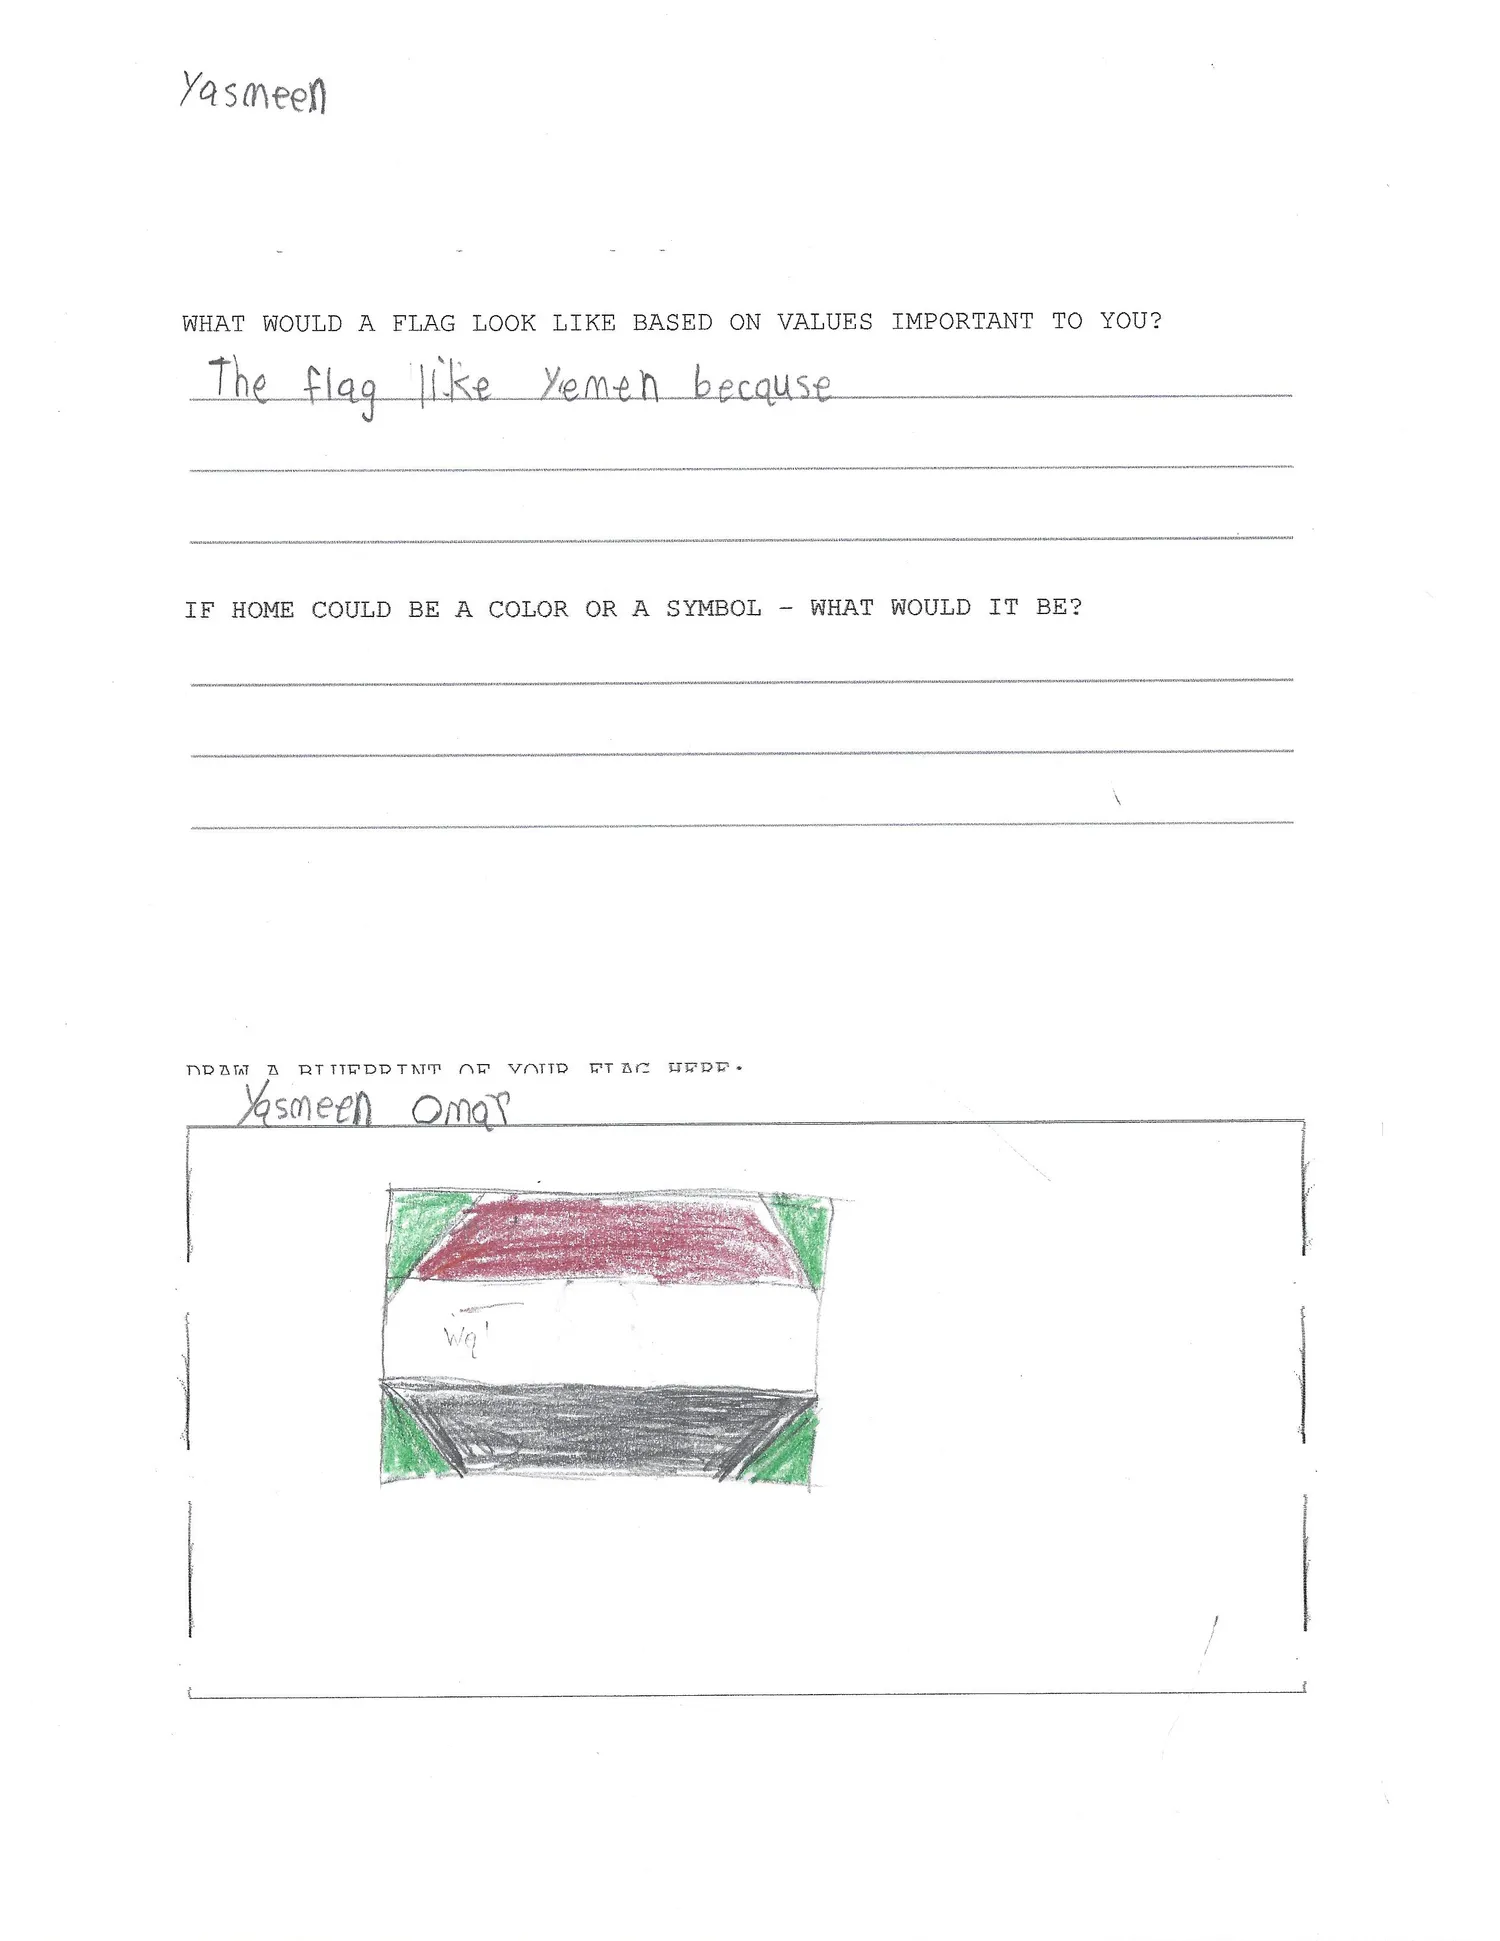 Yasmeen
WHAT WOULD A FLAG LOOK LIKE BASED ON VALUES IMPORTANT TO YOU?
The flag like Yemen because
IF HOME COULD BE A COLOR OR A SYMBOL - WHAT WOULD IT BE?
DRAW A BLUEPRINT OF YOUR FLAG HERE.
Yasmeen Omar